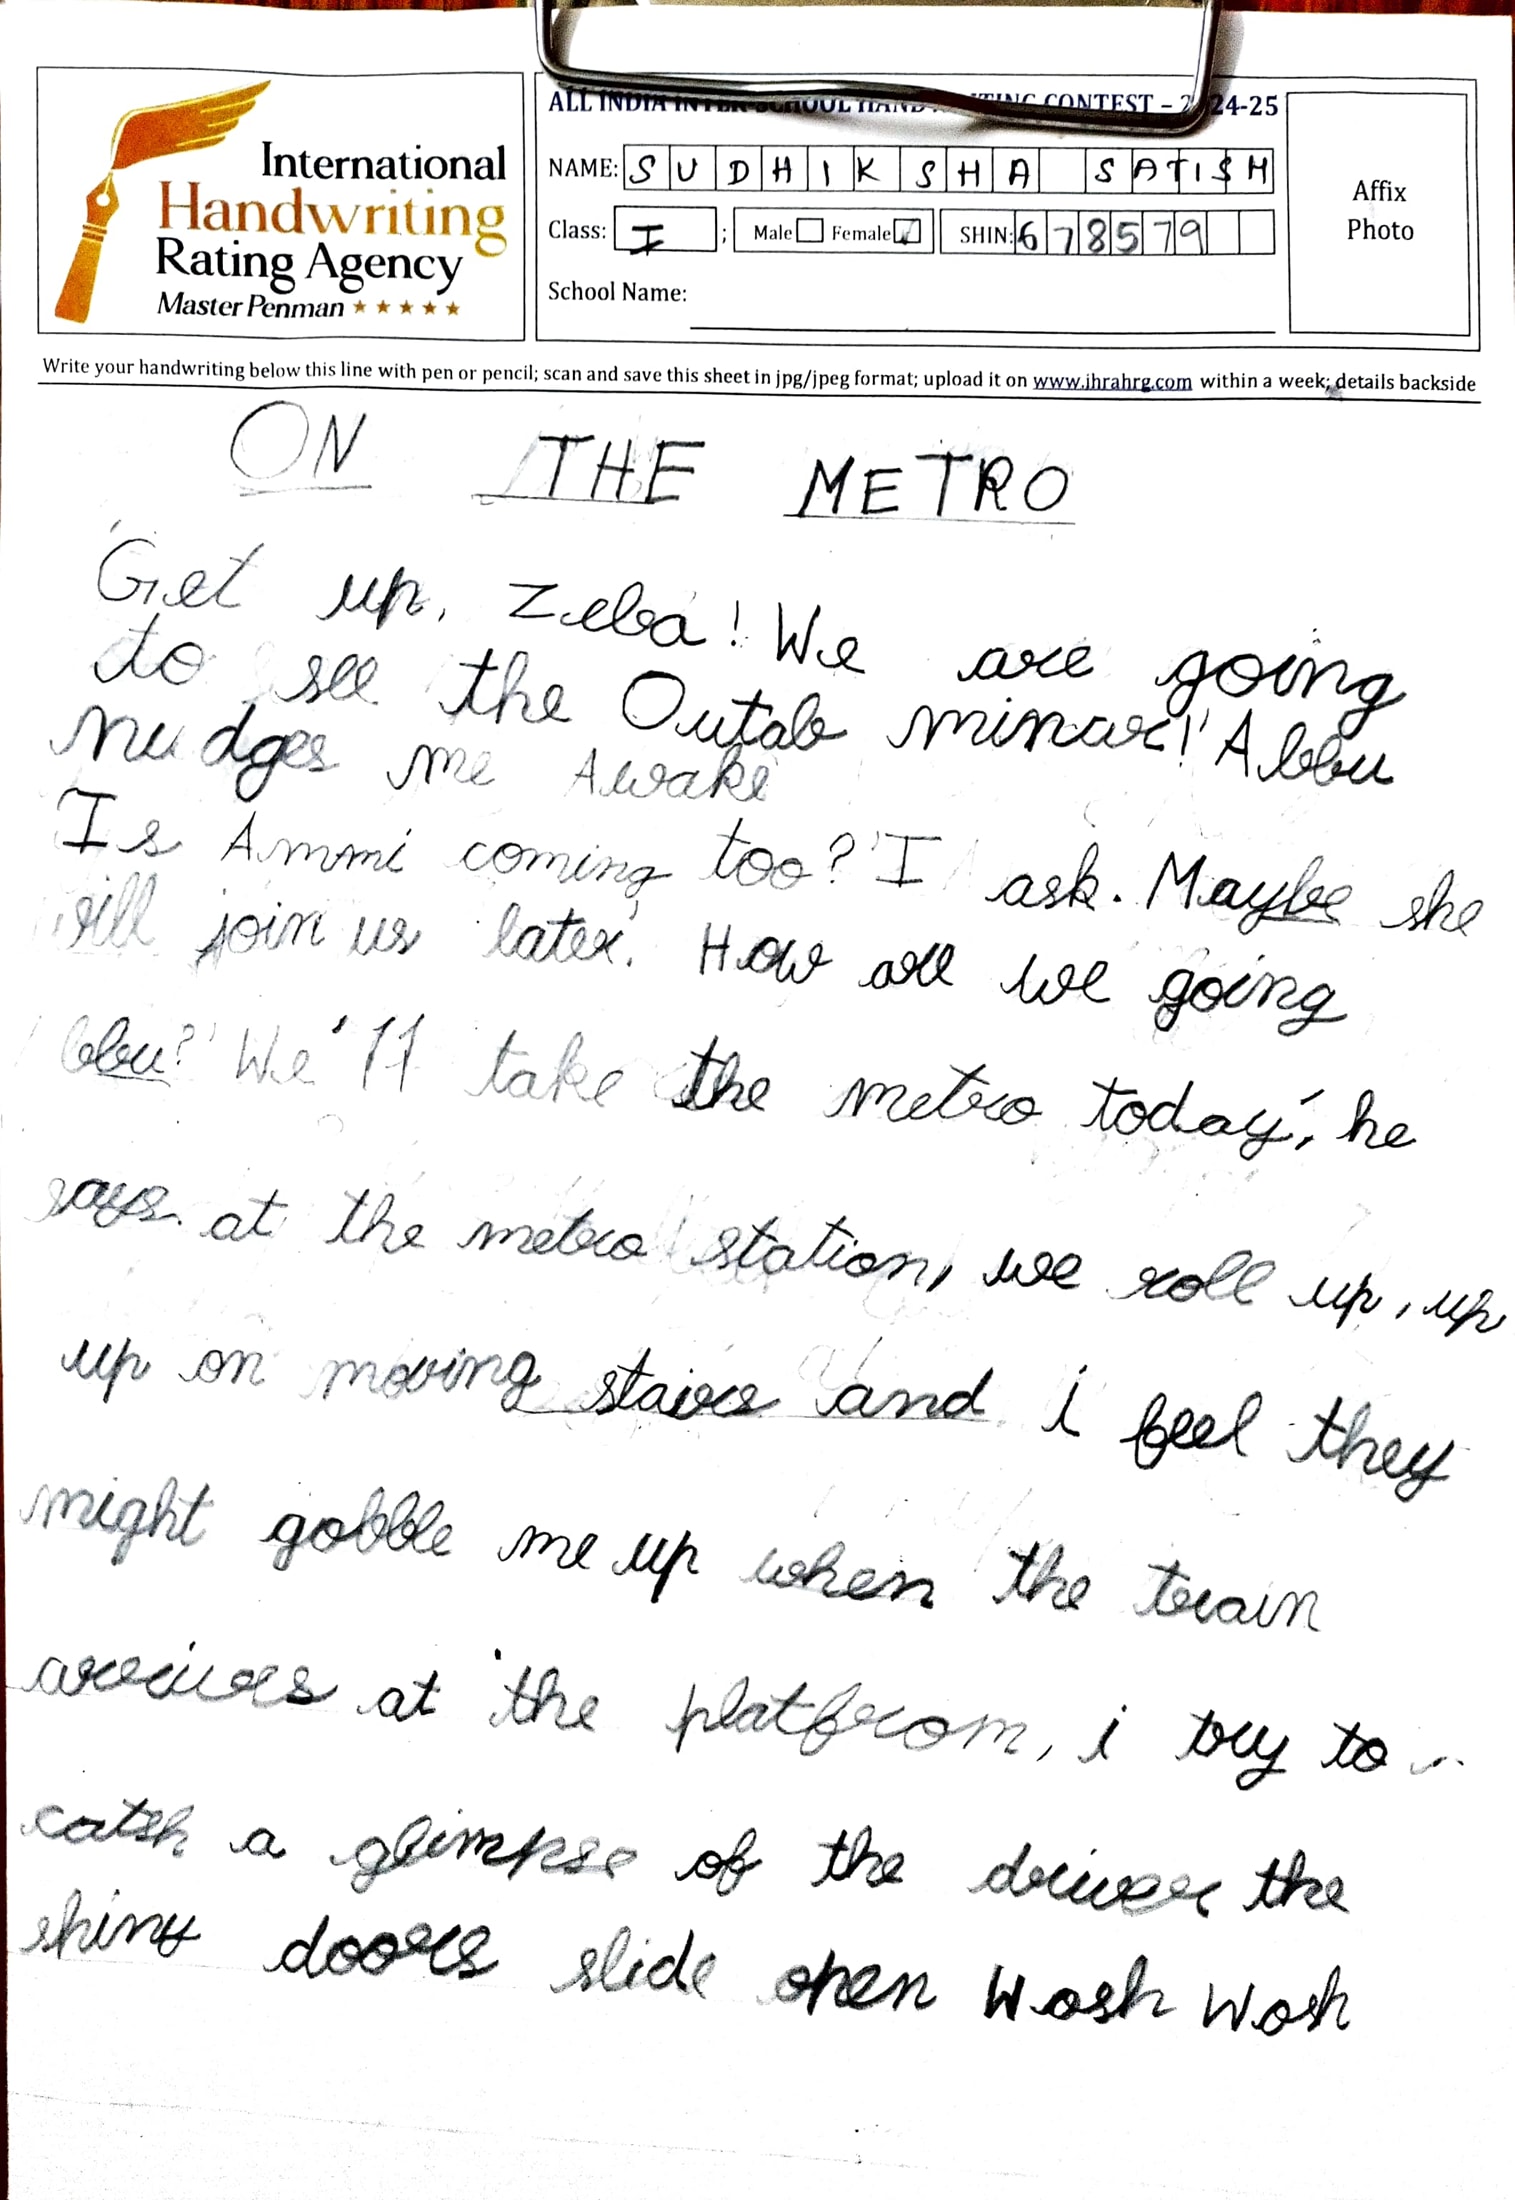 International
Handwriting
Rating Agency
Master Penman
ALL INDIA INTER SCHOOL CONTEST – 2024-25
NAME: SUDHIKSHA SATISH
Class: I ; Male Female SHIN: 678579
School Name:
Affix
Photo
Write your handwriting below this line with pen or pencil; scan and save this sheet in jpg/jpeg format; upload it on www.ihrahrg.com within a week; details backside
ON THE METRO
Get up, Zeba! We are going
to see the Outab minar!' Abbu
nudges me Awake
Is Ammi coming too?' I ask. Maybe she
will join us later.' How are we going
bbu?' We'll take the metro today,' he
says. at the metro station, we roll up, up
up on moving stairs and i feel they
might gobble me up when the train
arrives at the platfrom, i try to
catsh a glimpse of the driver the
shiny doors slide open Wosh Wosh